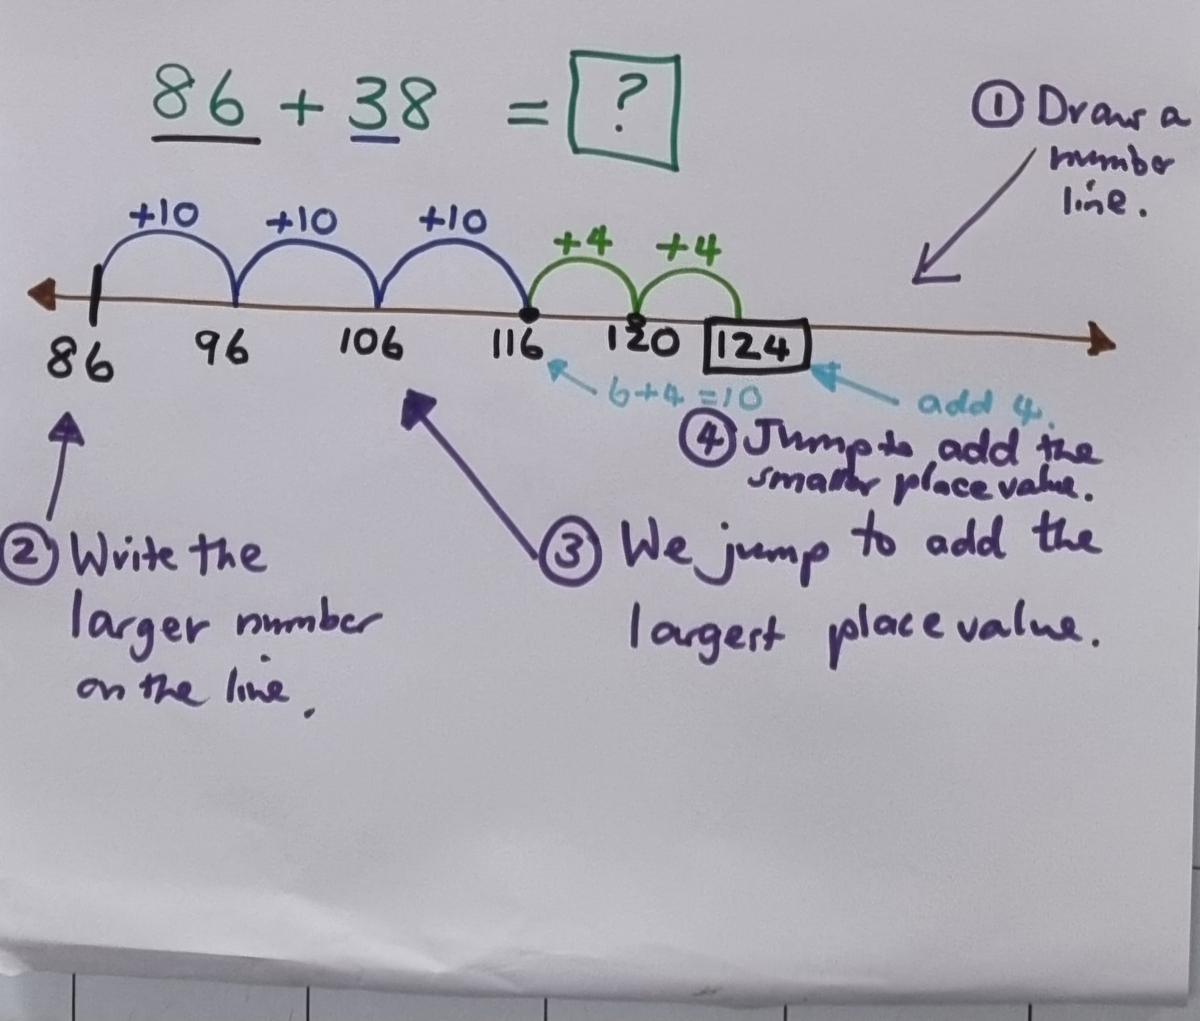 86 + 38 = ?
① Draw a
number
line.
+10 +10 +10 +4 +4
86 96 106 116 120 124
6+4=10
add 4.
④ Jump to add the
smaller place value.
② Write the
larger number
on the line.
③ We jump to add the
largest place value.